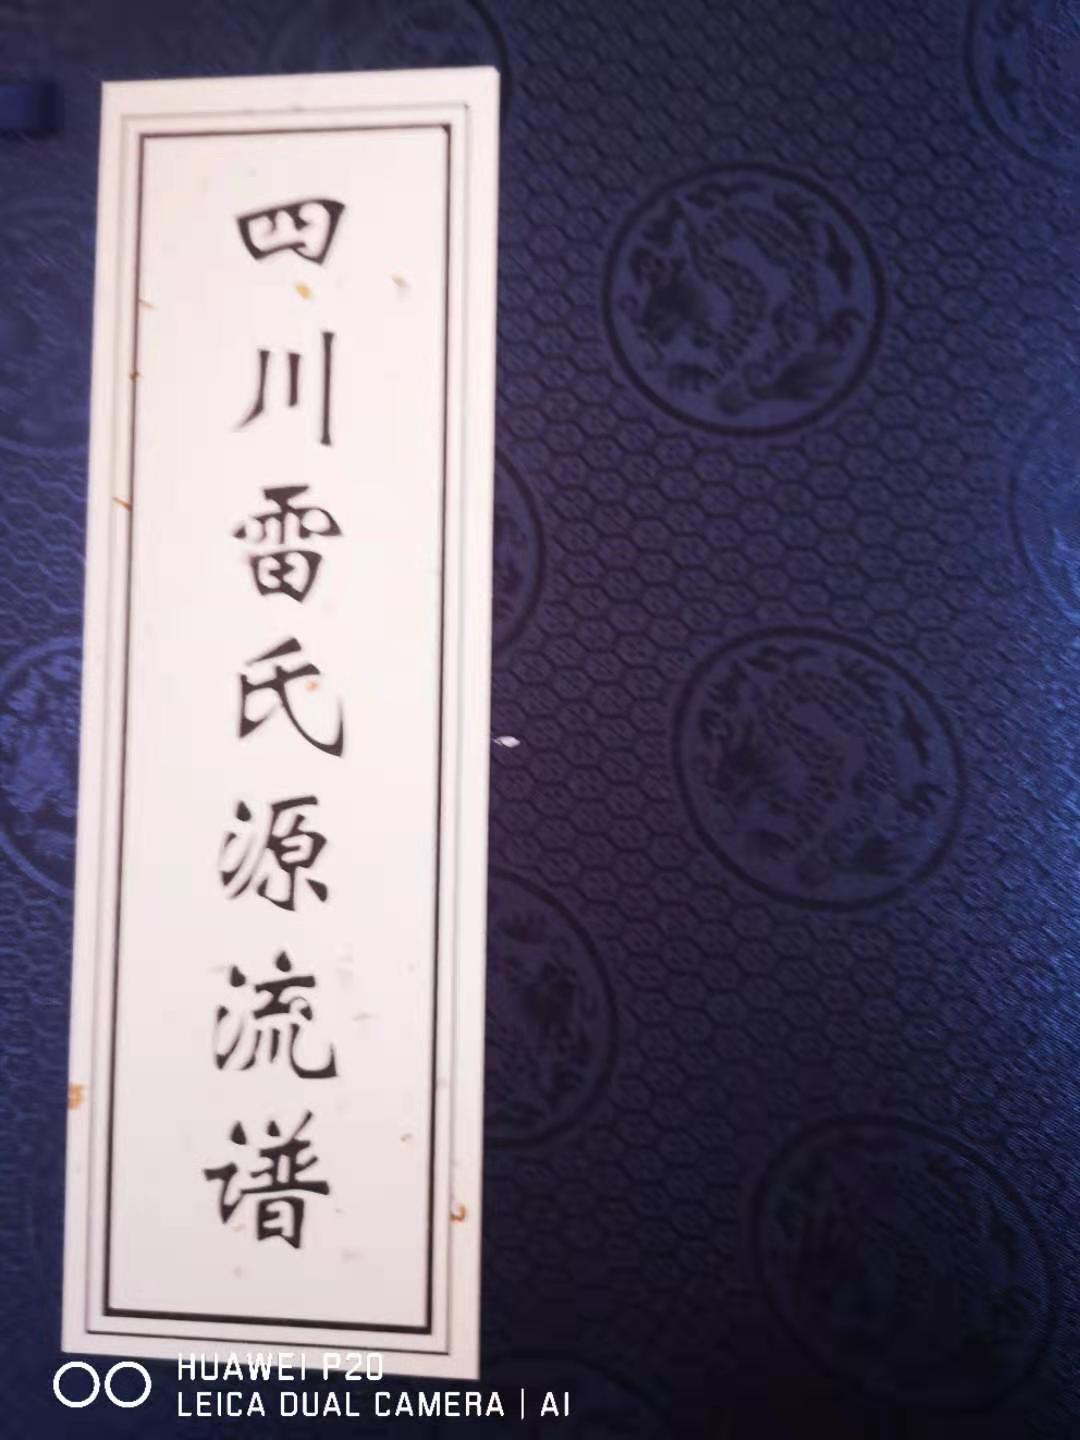 四川雷氏源流谱
HUAWEI P20
LEICA DUAL CAMERA | AI